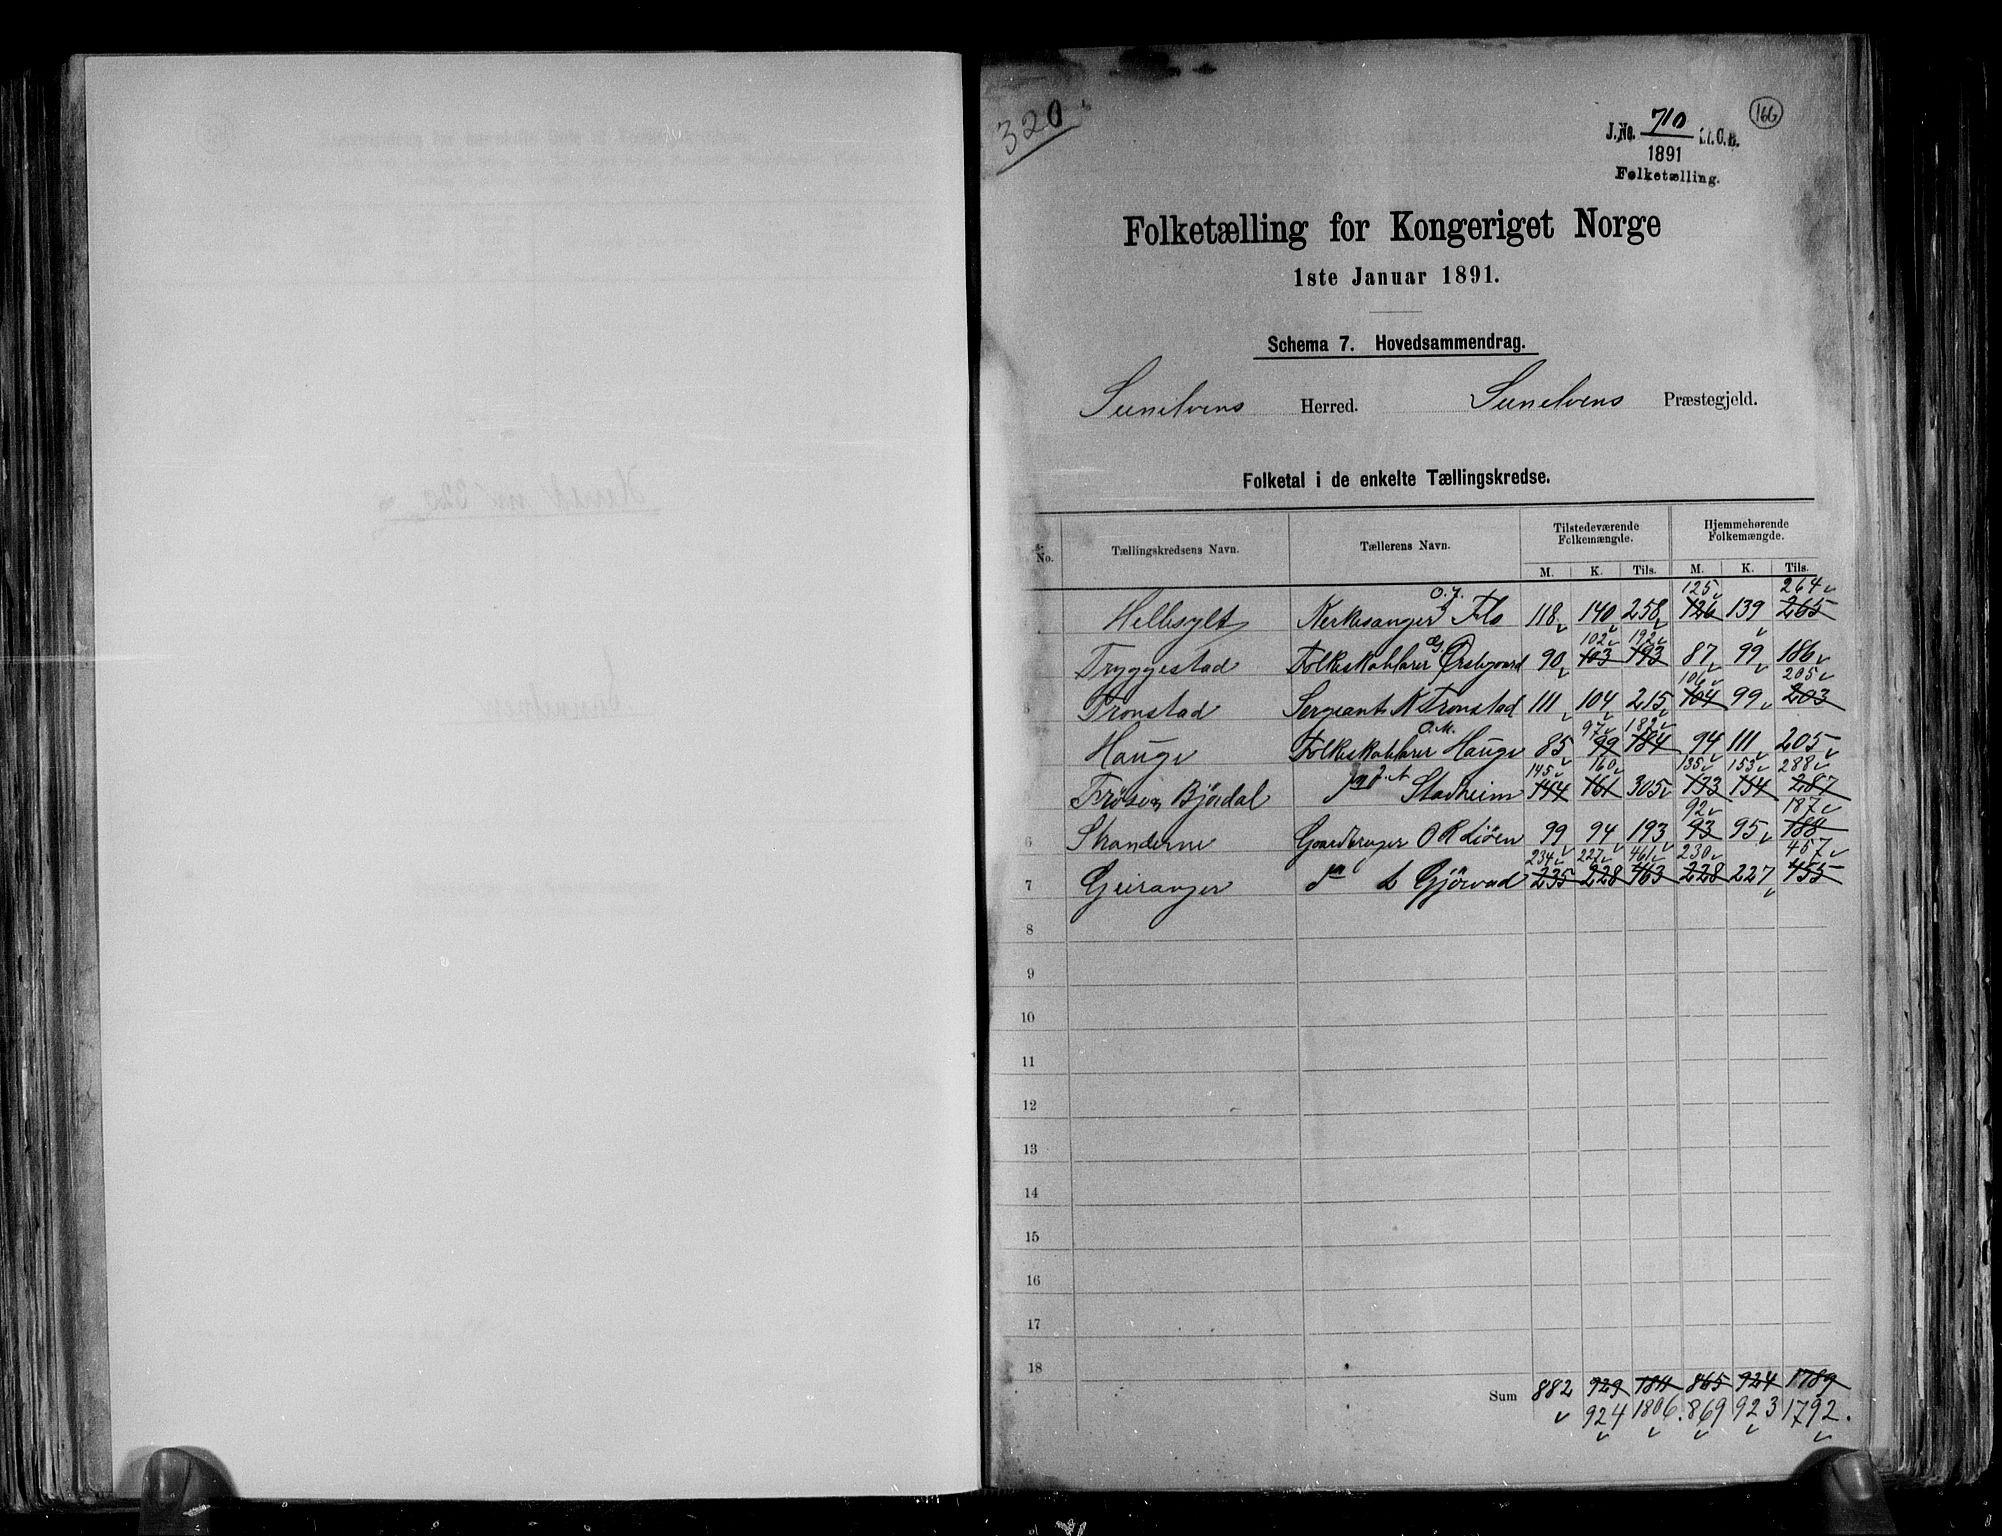 320
166
J.No. 710
1891
Folketælling.
Folketælling for Kongeriget Norge
1ste Januar 1891.
Schema 7. Hovedsammendrag.
Sunelvens Herred. Sunelvens Præstegjeld.
Folketal i de enkelte Tællingskredse.
No. Tællingskredsens Navn. Tællerens Navn. Tilstedeværende Folkemængde. Hjemmehørende Folkemængde.
M. K. Tils. M. K. Tils.
125 264
Hellesylt Kirkesanger O. J. Flo 118 140 258 126 139 265
102 192
Tryggestad Folkeskolelærer Ørskogaard 90 103 193 87 99 186
106 205
Tronstad Sergeant K Tronstad 111 104 215 104 99 203
97 182
Hauge Folkeskolelærer O. M. Hauge 85 99 184 94 111 205
145 160 135 153 288
Frøse og Bjørdal Stadheim 144 161 305 133 154 287
92 187
6 Stranderne Gaardbruger O R Liøen 99 94 193 93 95 188
234 227 461 230 457
7 Geiranger do L Gjørvad 235 228 463 228 227 455
8
9
10
11
12
13
14
15
16
17
18
Sum 882 929 1811 865 924 1789
924 1806. 869 923 1792.